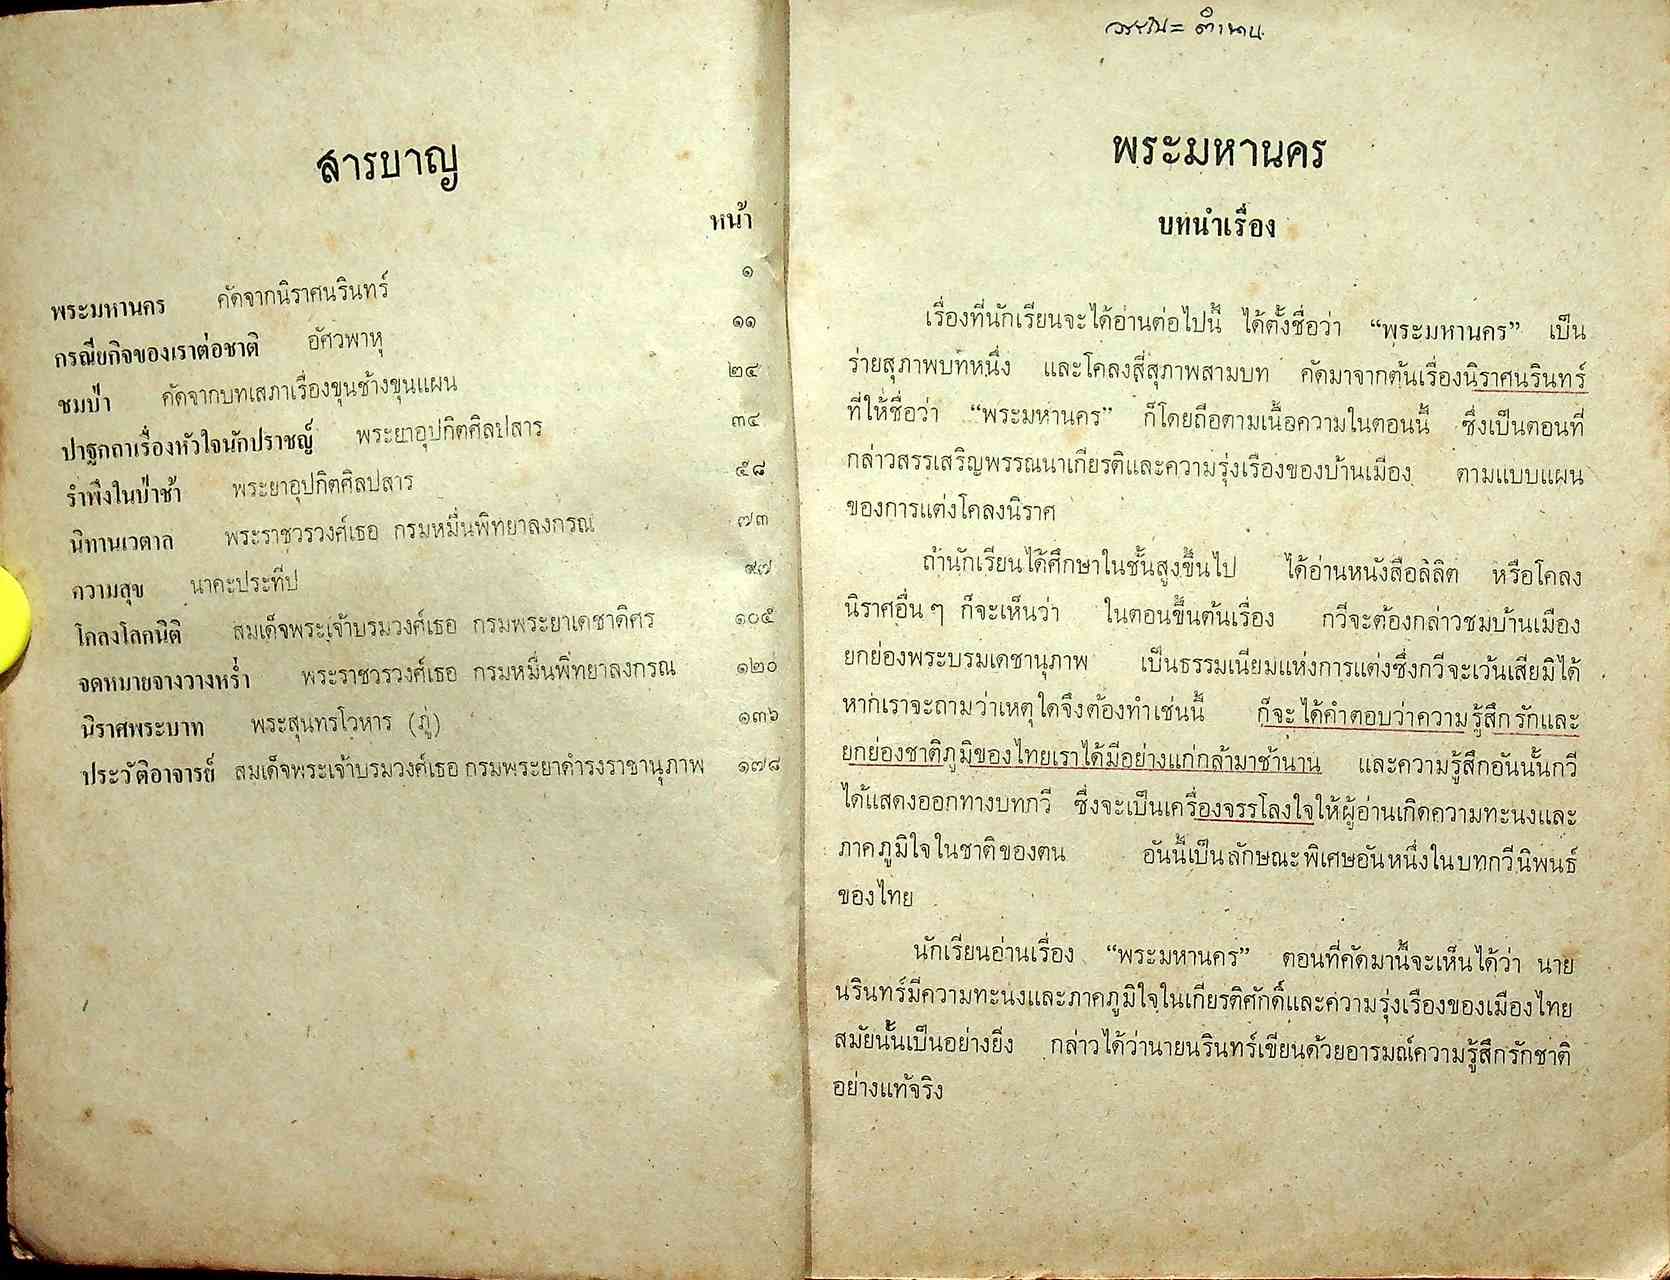 สารบาญ
หน้า
พระมหานคร คัดจากนิราศนรินทร์ ๑
กรณียกิจของเราต่อชาติ อัศวพาหุ ๑๑
ชมป่า คัดจากบทเสภาเรื่องขุนช้างขุนแผน ๒๔
ปาฐกถาเรื่องหัวใจนักปราชญ์ พระยาอุปกิตศิลปสาร ๓๔
รำพึงในป่าช้า พระยาอุปกิตศิลปสาร ๕๘
นิทานเวตาล พระราชวรวงศ์เธอ กรมหมื่นพิทยาลงกรณ ๗๓
ความสุข นาคะประทีป ๙๗
โคลงโลกนิติ สมเด็จพระเจ้าบรมวงศ์เธอ กรมพระยาเดชาดิศร ๑๐๕
จดหมายจางวางหร่ำ พระราชวรวงศ์เธอ กรมหมื่นพิทยาลงกรณ ๑๒๐
นิราศพระบาท พระสุนทรโวหาร (ภู่) ๑๓๖
ประวัติอาจารย์ สมเด็จพระเจ้าบรมวงศ์เธอ กรมพระยาดำรงราชานุภาพ ๑๗๘
พระมหานคร
บทนำเรื่อง
เรื่องที่นักเรียนจะได้อ่านต่อไปนี้ ได้ตั้งชื่อว่า “พระมหานคร” เป็น
ร่ายสุภาพบทหนึ่ง และโคลงสี่สุภาพสามบท คัดมาจากต้นเรื่องนิราศนรินทร์
ที่ให้ชื่อว่า “พระมหานคร” ก็โดยถือตามเนื้อความในตอนนี้ ซึ่งเป็นตอนที่
กล่าวสรรเสริญพรรณนาเกียรติและความรุ่งเรืองของบ้านเมือง ตามแบบแผน
ของการแต่งโคลงนิราศ
ถ้านักเรียนได้ศึกษาในชั้นสูงขึ้นไป ได้อ่านหนังสือลิลิต หรือโคลง
นิราศอื่น ๆ ก็จะเห็นว่า ในตอนขึ้นต้นเรื่อง กวีจะต้องกล่าวชมบ้านเมือง
ยกย่องพระบรมเดชานุภาพ เป็นธรรมเนียมแห่งการแต่งซึ่งกวีจะเว้นเสียมิได้
หากเราจะถามว่าเหตุใดจึงต้องทำเช่นนี้ ก็จะได้คำตอบว่าความรู้สึกรักและ
ยกย่องชาติภูมิของไทยเราได้มีอย่างแก่กล้ามาช้านาน และความรู้สึกอันนั้นกวี
ได้แสดงออกทางบทกวี ซึ่งจะเป็นเครื่องจรรโลงใจให้ผู้อ่านเกิดความทะนงและ
ภาคภูมิใจในชาติของตน อันนี้เป็นลักษณะพิเศษอันหนึ่งในบทกวีนิพนธ์
ของไทย
นักเรียนอ่านเรื่อง “พระมหานคร” ตอนที่คัดมานี้จะเห็นได้ว่า นาย
นรินทร์มีความทะนงและภาคภูมิใจในเกียรติศักดิ์และความรุ่งเรืองของเมืองไทย
สมัยนั้นเป็นอย่างยิ่ง กล่าวได้ว่านายนรินทร์เขียนด้วยอารมณ์ความรู้สึกรักชาติ
อย่างแท้จริง